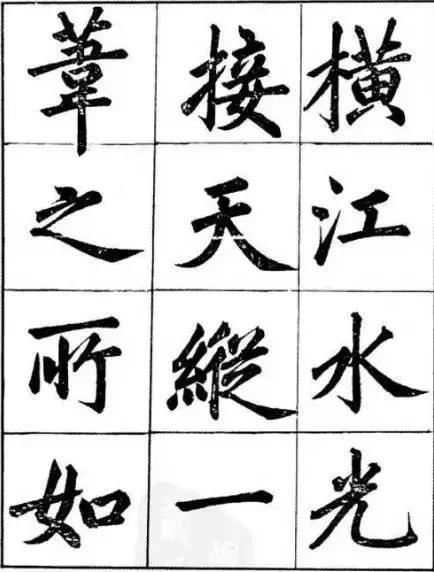 横江水光
接天縱一
葦之所如